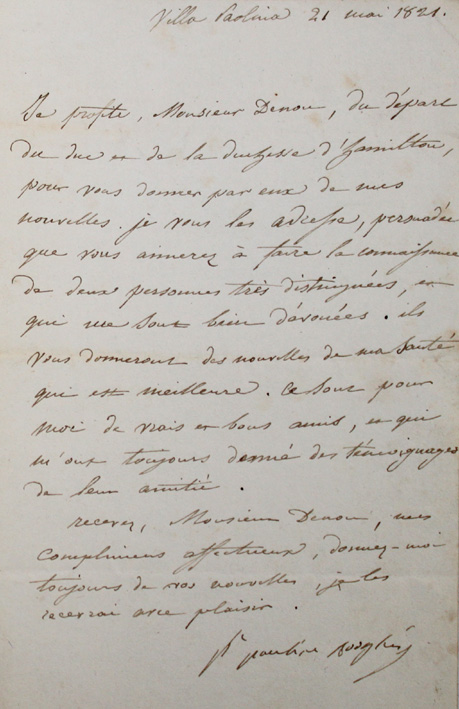 Villa Paolina 21 mai 1821.
Je profite, Monsieur Denon, du départ
du duc et de la duchesse d'hamilton,
pour vous donner par eux de mes
nouvelles. je vous les adresse, persuadée
que vous aimerez à faire la connaissance
de deux personnes très distinguées, et
qui me sont bien dévouées. ils
vous donneront des nouvelles de ma santé
qui est meilleure. ce sont pour
moi de vrais et bons amis, et qui
m'ont toujours donné des témoignages
de leur amitié.
recevez, Monsieur Denon, mes
complimens affectueux, donnez-moi
toujours de vos nouvelles, je les
recevrai avec plaisir.
pauline Borghèse